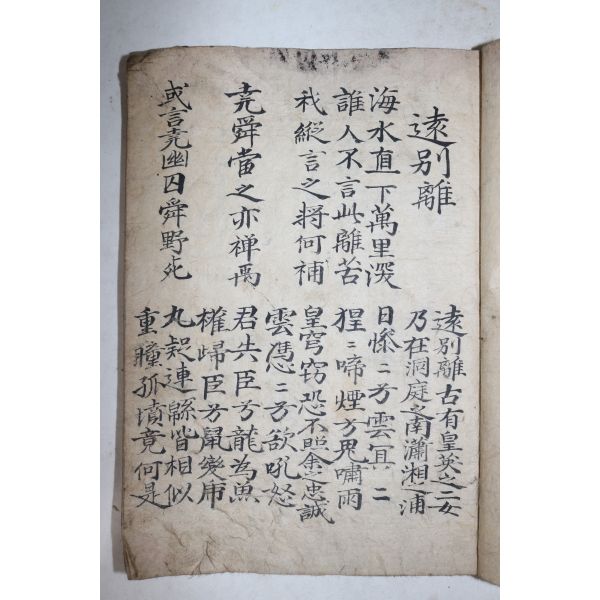 遠別離
遠別離古有皇英之二女
乃在洞庭之南瀟湘之浦
海水直下萬里深
誰人不言此離苦
日慘〻兮雲冥〻
猩〻啼煙兮鬼嘯雨
我縱言之將何補
皇穹竊恐不照余之忠誠
雲憑〻兮欲吼怒
堯舜當之亦禅禹
君失臣兮龍為魚
權歸臣兮鼠變虎
或言堯幽囚舜野死
九疑連緜皆相似
重瞳孤墳竟何是